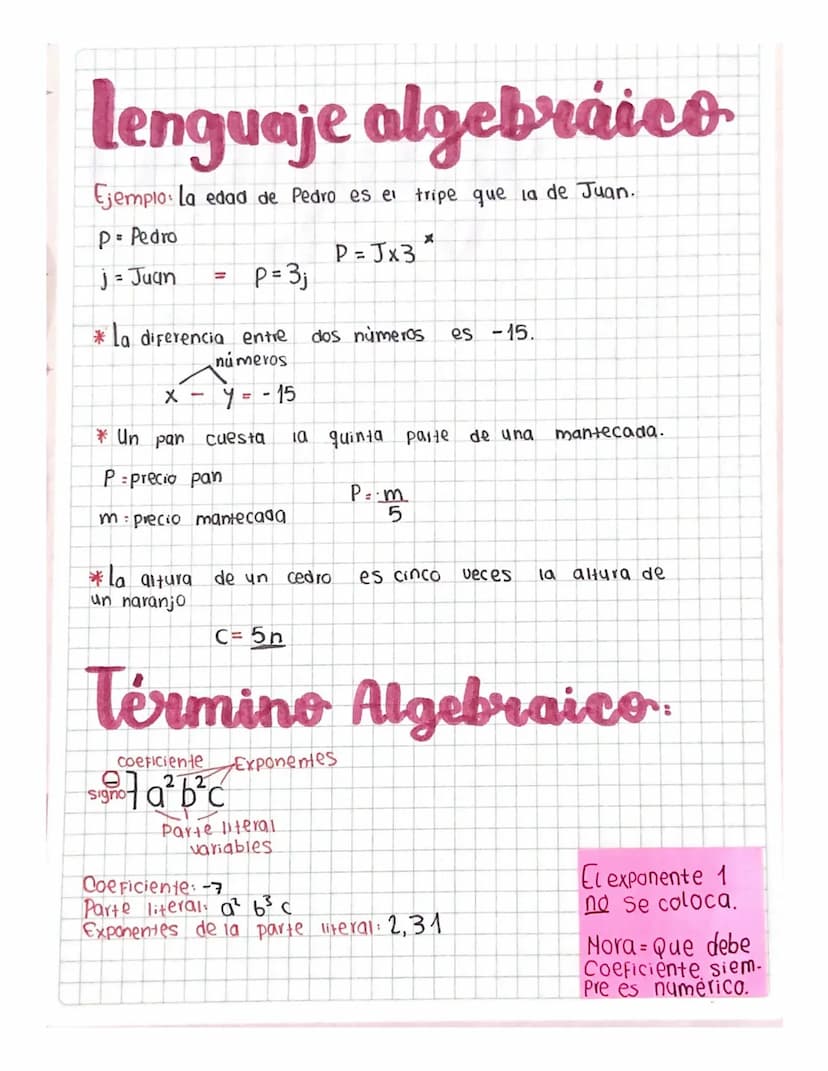 lenguaje algebráico
Ejemplo: La edad de Pedro es el tripe que la de Juan.
P = Pedro
P = Jx3 *
j = Juan = P = 3j
* La diferencia entre dos números es -15.
números
x - y = -15
* Un pan cuesta la quinta parte de una mantecada.
P = precio pan
P = m
m = precio mantecada
5
* la altura de un cedro es cinco veces la altura de
un naranjo
C = 5n
Término Algebraico:
coeficiente Exponentes
signo -7a²b²c
Parte literal
variables
Coeficiente: -7
Parte literal: a² b³ c
Exponentes de la parte literal: 2,31
El exponente 1
no se coloca.
Nora = Que debe
Coeficiente siem-
pre es numérico.